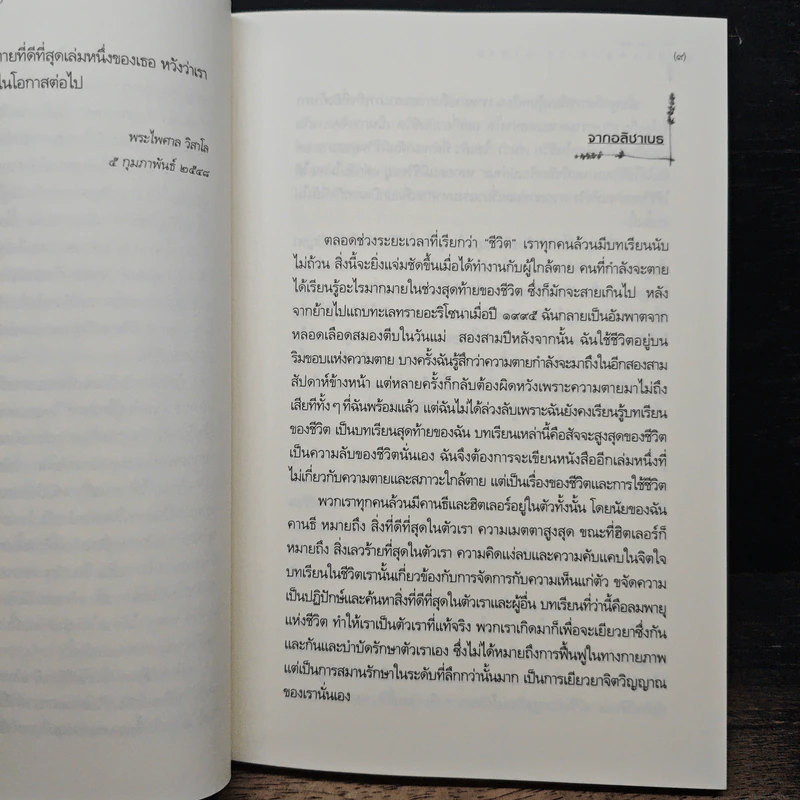 ายที่ดีที่สุดเล่มหนึ่งของเธอ หวังว่าเรา
ในโอกาสต่อไป
พระไพศาล วิสาโล
๕ กุมภาพันธ์ ๒๕๔๘
(๙)
จากอลิซาเบธ
ตลอดช่วงระยะเวลาที่เรียกว่า "ชีวิต" เราทุกคนล้วนมีบทเรียนนับ
ไม่ถ้วน สิ่งนี้จะยิ่งแจ่มชัดขึ้นเมื่อได้ทำงานกับผู้ใกล้ตาย คนที่กำลังจะตาย
ได้เรียนรู้อะไรมากมายในช่วงสุดท้ายของชีวิต ซึ่งก็มักจะสายเกินไป หลัง
จากย้ายไปแถบทะเลทรายอะริโซนาเมื่อปี ๑๙๙๕ ฉันกลายเป็นอัมพาตจาก
หลอดเลือดสมองตีบในวันแม่ สองสามปีหลังจากนั้น ฉันใช้ชีวิตอยู่บน
ริมขอบแห่งความตาย บางครั้งฉันรู้สึกว่าความตายกำลังจะมาถึงในอีกสองสาม
สัปดาห์ข้างหน้า แต่หลายครั้งก็กลับต้องผิดหวังเพราะความตายมาไม่ถึง
เสียทีทั้งๆ ที่ฉันพร้อมแล้ว แต่ฉันไม่ได้ล่วงลับเพราะฉันยังคงเรียนรู้บทเรียน
ของชีวิต เป็นบทเรียนสุดท้ายของฉัน บทเรียนเหล่านี้คือสัจจะสูงสุดของชีวิต
เป็นความลับของชีวิตนั่นเอง ฉันจึงต้องการจะเขียนหนังสืออีกเล่มหนึ่งที่
ไม่เกี่ยวกับความตายและสภาวะใกล้ตาย แต่เป็นเรื่องของชีวิตและการใช้ชีวิต
พวกเราทุกคนล้วนมีคานธีและฮิตเลอร์อยู่ในตัวทั้งนั้น โดยนัยของฉัน
คานธี หมายถึง สิ่งที่ดีที่สุดในตัวเรา ความเมตตาสูงสุด ขณะที่ฮิตเลอร์ก็
หมายถึง สิ่งเลวร้ายที่สุดในตัวเรา ความคิดแง่ลบและความคับแคบในจิตใจ
บทเรียนในชีวิตเรานั้นเกี่ยวข้องกับการจัดการกับความเห็นแก่ตัว ขจัดความ
เป็นปฏิปักษ์และค้นหาสิ่งที่ดีที่สุดในตัวเราและผู้อื่น บทเรียนที่ว่านี้คือลมพายุ
แห่งชีวิต ทำให้เราเป็นตัวเราที่แท้จริง พวกเราเกิดมาก็เพื่อจะเยียวยาซึ่งกัน
และกันและบำบัดรักษาตัวเราเอง ซึ่งไม่ได้หมายถึงการฟื้นฟูในทางกายภาพ
แต่เป็นการสมานรักษาในระดับที่ลึกกว่านั้นมาก เป็นการเยียวยาจิตวิญญาณ
ของเรานั่นเอง